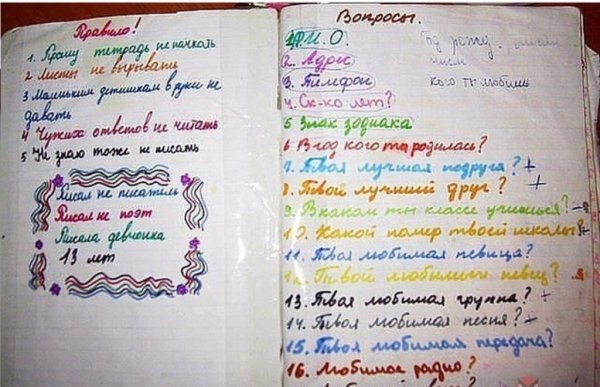 Правило!
1. Прошу тетрадь не пачкать
2 Листы не вырывать
3 Маленьким детишкам в руки не
давать
4 Чужих ответов не читать
5 Не знаю тоже не писать
Писал не писатель
Писал не поэт
Писала девчонка
13 лет
Вопросы.
1. Ф.И.О.
2. Адрес
3. Телефон
4. Ск-ко лет?
5 Знак зодиака
6 В год кого ты родилась?
7. Твоя лучшая подруга? +
8. Твой лучший друг? +
9. В каком ты классе учишься?
10. Какой номер твоей школы?
11. Твоя любимая певица?
12. Твой любимый певец?
13. Твоя любимая группа? +
14. Твоя любимая песня? +
15. Твоя любимая передача?
16. Любимое радио?
Год рожд.
кого ты любишь